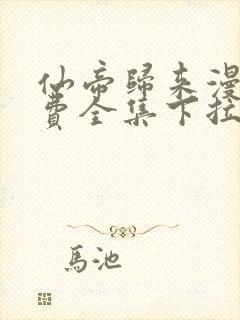 仙帝歸來漫
費全集下拉
馬池